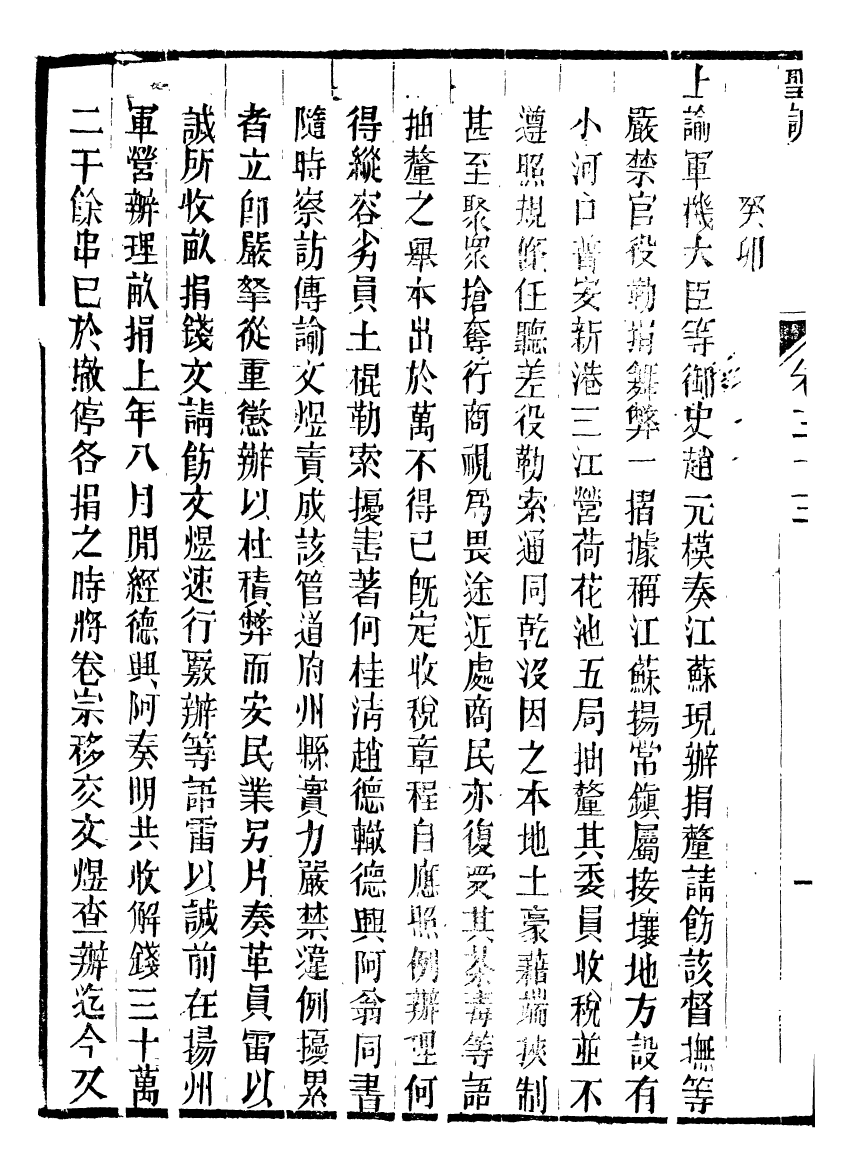 聖訓
卷二十三
一
癸卯
上諭軍機大臣等御史趙元模奏江蘇現辦捐釐請飭該督撫等
嚴禁官役勒捐舞弊一摺據稱江蘇揚常鎮屬接壤地方設有
小河口普安新港三江營荷花池五局抽釐其委員收稅並不
遵照規條任聽差役勒索通同乾沒因之本地土豪藉端挾制
甚至聚眾搶奪行商視為畏途近處商民亦復受其荼毒等語
抽釐之舉本出於萬不得已旣定收稅章程自應照例辦理何
得縱容劣員土棍勒索擾害著何桂淸趙德轍德興阿翁同書
隨時察訪傳諭文煜責成該管道府州縣實力嚴禁違例擾累
者立卽嚴拏從重懲辦以杜積弊而安民業另片奏革員雷以
諴所收畝捐錢文請飭文煜速行覈辦等語雷以諴前在揚州
軍營辦理畝捐上年八月間經德興阿奏明共收解錢三十萬
二千餘串已於撤停各捐之時將卷宗移交文煜查辦迄今又